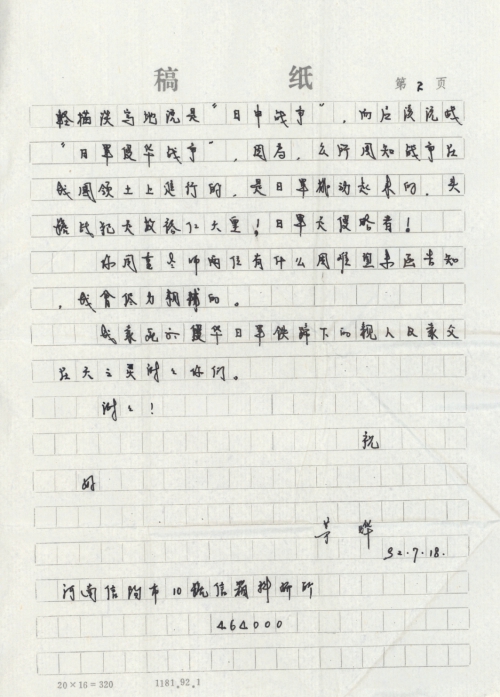 稿 纸 第 2 页
轻描淡写地说是“日中战争”，而应该说成
“日军侵华战争”，因为，众所周知战争在
我国领土上进行的，是日军挑动起来的，头
号战犯是裕仁天皇！日军是侵略者！
你同童老师两位有什么困难望来函告知
，我会尽力相辅的。
我表死亡侵华日军铁蹄下的亲人及家父
在天之灵谢谢你们。
谢谢！
祝
好
92.7.18.
河南信阳市10号信箱科研所
464000
20×16=320 1181.92.1